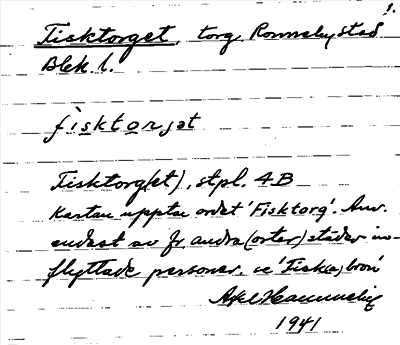 1.
Fisktorget, torg Ronneby stad
Blek. l.
fisktorjət
Fisktorg(et), stpl. 4B
Kartan upptar ordet 'Fisktorg'. Anv.
endast av fr. andra (orter) städer in-
flyttade personer. se 'Fisk(e)bron'
Axel
1941